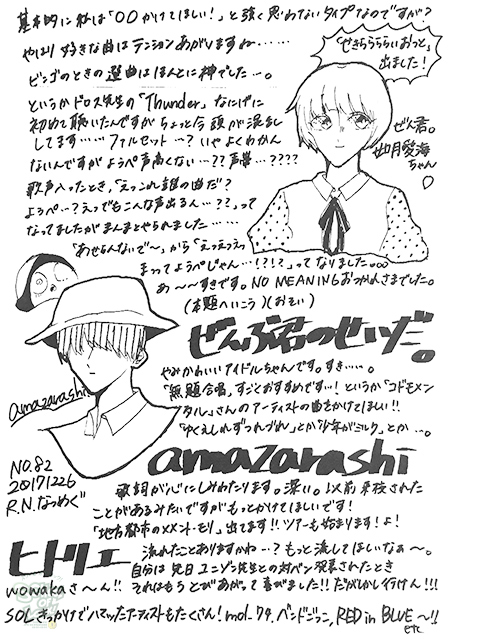 基本的に私は「〇〇かけてほしい!」と強く思わないタイプなのですが?
やはり好きな曲はテンションあがりますね……
ビンゴのときの選曲はほんとに神でした…。
というかドロス先生の「Thunder」なにげに
初めて聴いたんですがちょっと今頭が混乱
してます……ファルセット…?いやよくわかん
ないんですがようぺ声高くない…??声帯…????
歌声入ったとき、「えっこれ誰の曲だ?
ようぺ…?えっでもこんな声出るん…??」って
なってましたがまんまとやられました……
「あせらんないで〜」から「えっえっえっ
まってようぺじゃん…!?!?」ってなりました。。。
あ〜〜すきです。NO MEANINGおつかれさまでした。
(本題へいこう)(おそい)
「せきららららいおっと」
出ました!
ぜん君。
如月愛海
ちゃん
ぜんぶ君のせいだ。
やみかわいいアイドルちゃんです。すき……。
「無題合唱」、すごくおすすめです…!というか「コドモメン
タル」さんのアーティストの曲をかけてほしい!!
「ゆくえしれずつれづれ」とか「少年がミルク」とか…。
amazarashi
amazarashi
歌詞が心にしみわたります。深い。以前来校された
ことがあるみたいですがもっとかけてほしいです!
「地方都市のメメント・モリ」出てます!!ツアーも始まります!よ!
NO.82
20171226
R.N.なつめぐ
ヒトリエ
流れたことありますかね…?もっと流してほしいなぁ〜。
自分は先日ユニゾン先生との対バン発表されたとき
wowakaさ〜ん!!それはもうとびあがって喜びました!!だがしかし行けん!!!
SOLきっかけでハマったアーティストもたくさん!mol-74、バンドごっこ、RED in BLUE〜!!
etc.